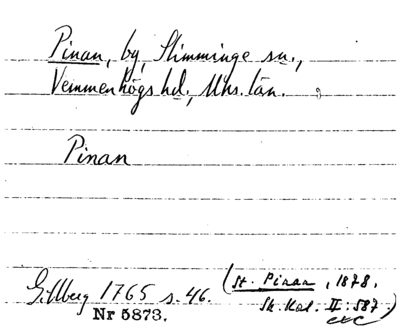 Pinan, by, Slimminge sn.,
Vemmenhögs hd., Mhs. län.
Pinan
Gillberg 1765 s. 46. (St. Pinan, 1878,
Sk. Kal. II: 587)
etc
Nr 5873.